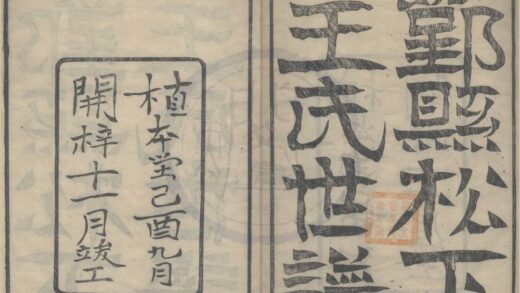 鄞縣松下
王氏世譜
植本堂己酉九月
開梓十一月竣工